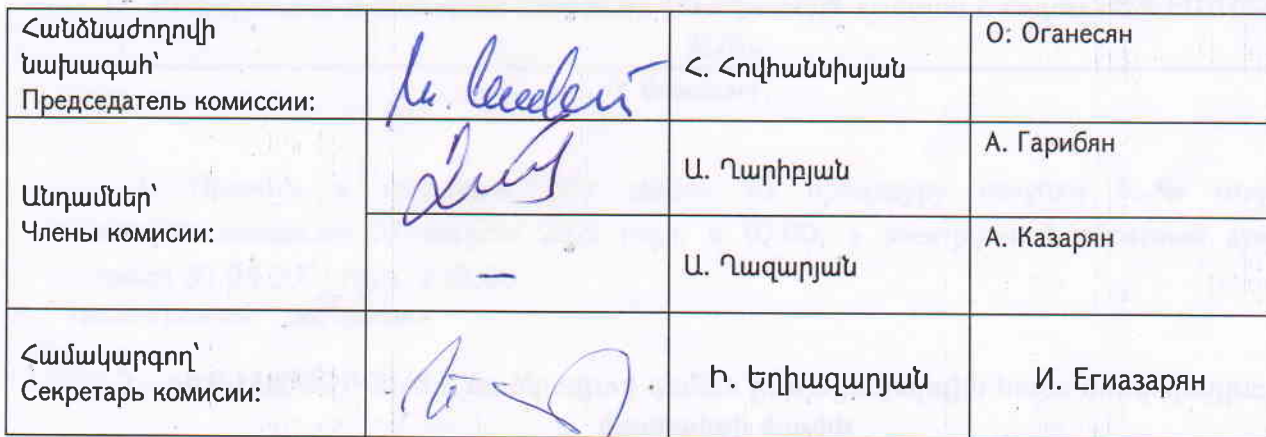 Հանձնաժողովի
նախագահ՝
Председатель комиссии:
Հ. Հովհաննիսյան
О: Оганесян
Անդամներ՝
Члены комисии:
Ա. Ղարիբյան
А. Гарибян
—
Ա. Ղազարյան
А. Казарян
Համակարգող՝
Секретарь комисии:
Ի. Եղիազարյան
И. Егиазарян